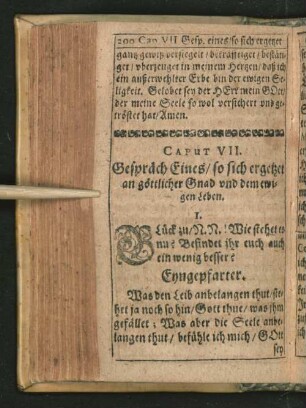 200 Cap VII. Gesp. eines/so sich ergetzet
gantz gewiß versiegelt/bekräfftiget/bestän-
get/vberzeuget in meinem Hertzen/daß ich
ein außerwehlter Erbe bin der ewigen Se-
ligkeit. Gelobet sey der HErr mein GOtt/
der meine Seele so wol versichert vnd ge-
tröstet hat/Amen.
CAPUT VII.
Gespräch Eines/so sich ergetzet
an göttlicher Gnad vnd dem ewi-
gen Leben.
1.
GLück zu/N.N.! Wie stehet es
nu? Befindet jhr euch auch
ein wenig besser?
Eyngepfarter.
Was den Leib anbelangen thut/ste-
het ja noch so hin/Gott thue/was jhm
gefället; Was aber die Seele anbe-
langen thut/befähle ich mich/GOtt
sey